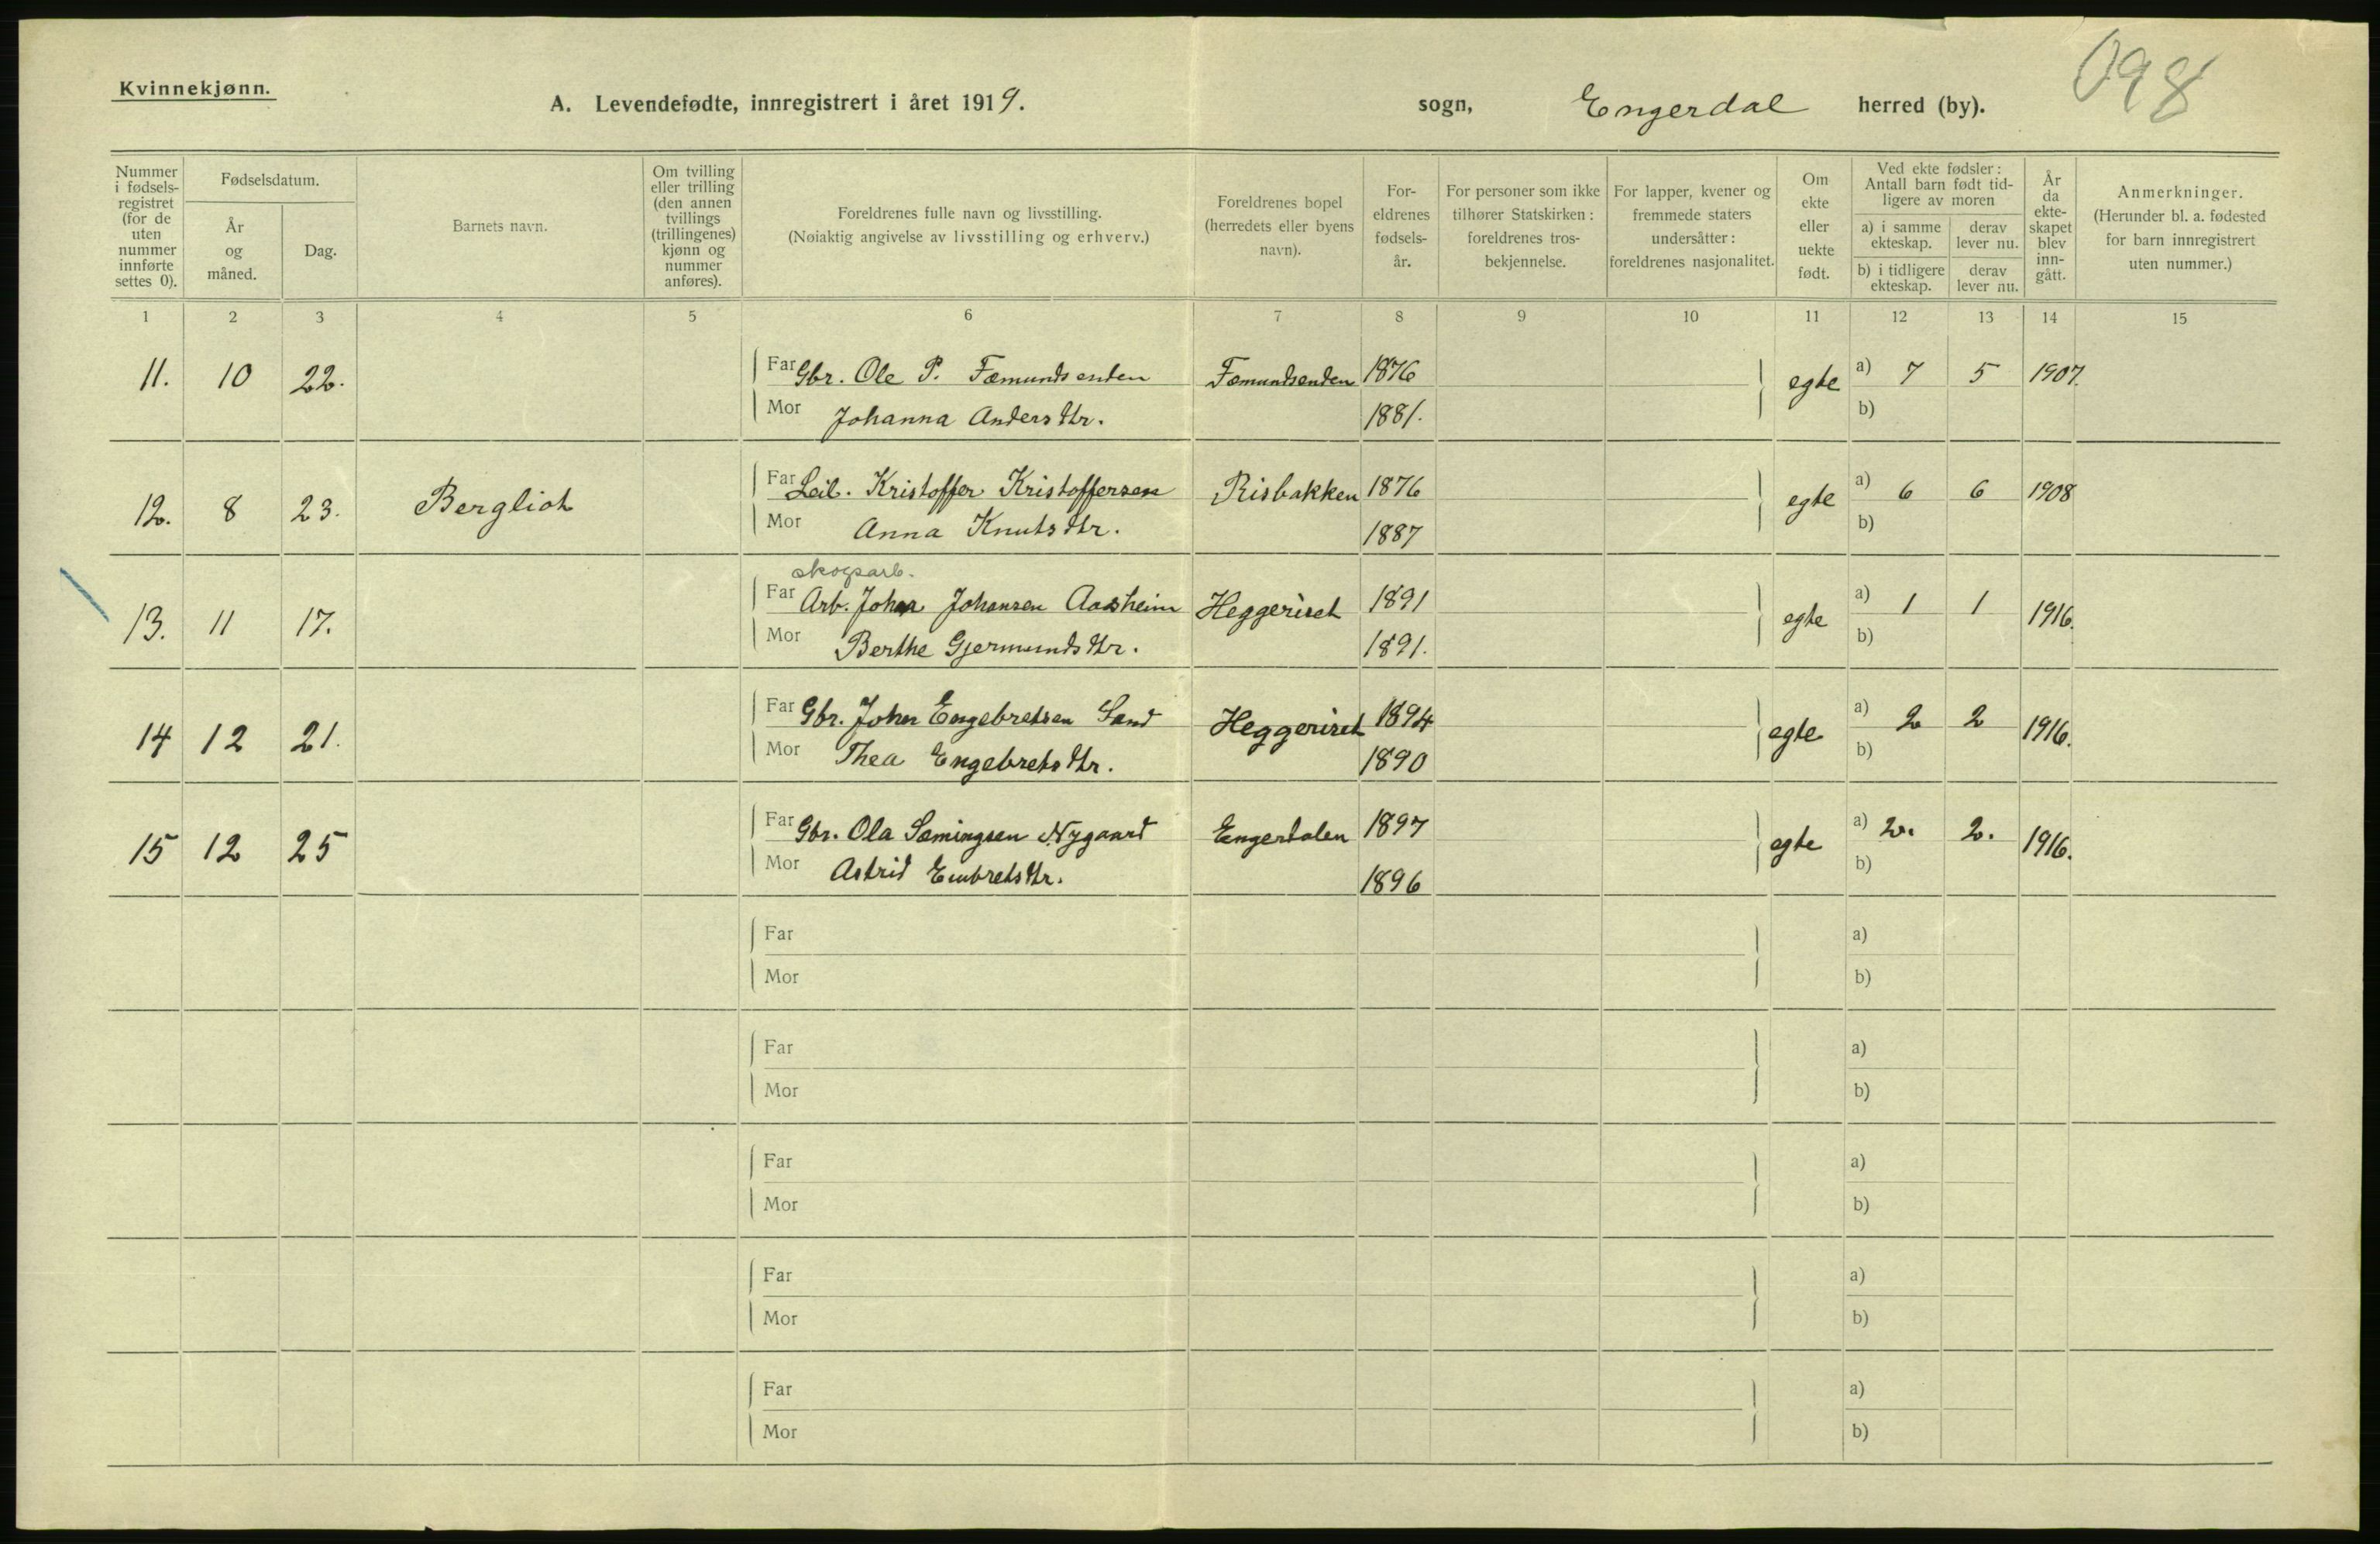 Kvinnekjønn.
A. Levendefødte, innregistrert i året 1919.
sogn, Engerdal herred (by).
098
Nummer i fødsels- registret (for de uten nummer innførte settes 0).
Fødselsdatum.
År og måned.
Dag.
Barnets navn.
Om tvilling eller trilling (den annen tvillings (trillingenes) kjønn og nummer anføres).
Foreldrenes fulle navn og livsstilling.
(Nøiaktig angivelse av livsstilling og erhverv.)
Foreldrenes bopel (herredets eller byens navn).
For- eldrenes fødsels- år.
For personer som ikke tilhører Statskirken: foreldrenes tros- bekjennelse.
For lapper, kvener og fremmede staters undersåtter: foreldrenes nasjonalitet.
Om ekte eller uekte født.
Ved ekte fødsler: Antall barn født tid- ligere av moren
a) i samme ekteskap.
derav lever nu.
b) i tidligere ekteskap.
derav lever nu.
År da ekte- skapet blev inn- gått.
Anmerkninger.
(Herunder bl. a. fødested for barn innregistrert uten nummer.)
1 2 3 4 5 6 7 8 9 10 11 12 13 14 15
11. 10 22. Far Gbr. Ole P. Fæmundsenden Fæmundsenden 1876 egte a) 7 5 1907.
Mor Johanna Andersdtr. 1881. b)
12. 8 23. Bergliot Far Leil. Kristoffer Kristoffersen Risbakken 1876 egte a) 6 6 1908
Mor Anna Knutsdtr. 1887 b)
skogsarb.
13. 11 17. Far Arb. Johan Johansen Aasheim Heggeriset 1891 egte a) 1 1 1916.
Mor Berthe Gjermundsdtr. 1891. b)
14 12 21. Far Gbr. Johan Engebretsen Sand Heggeriset 1894 egte a) 2 2 1916.
Mor Thea Engebretsdtr. 1890 b)
15 12 25 Far Gbr. Ola Sæmingsen Nygaard Engerdalen 1897 egte a) 2. 2. 1916.
Mor Astrid Embretsdtr. 1896 b)
Far a)
Mor b)
Far a)
Mor b)
Far a)
Mor b)
Far a)
Mor b)
Far a)
Mor b)